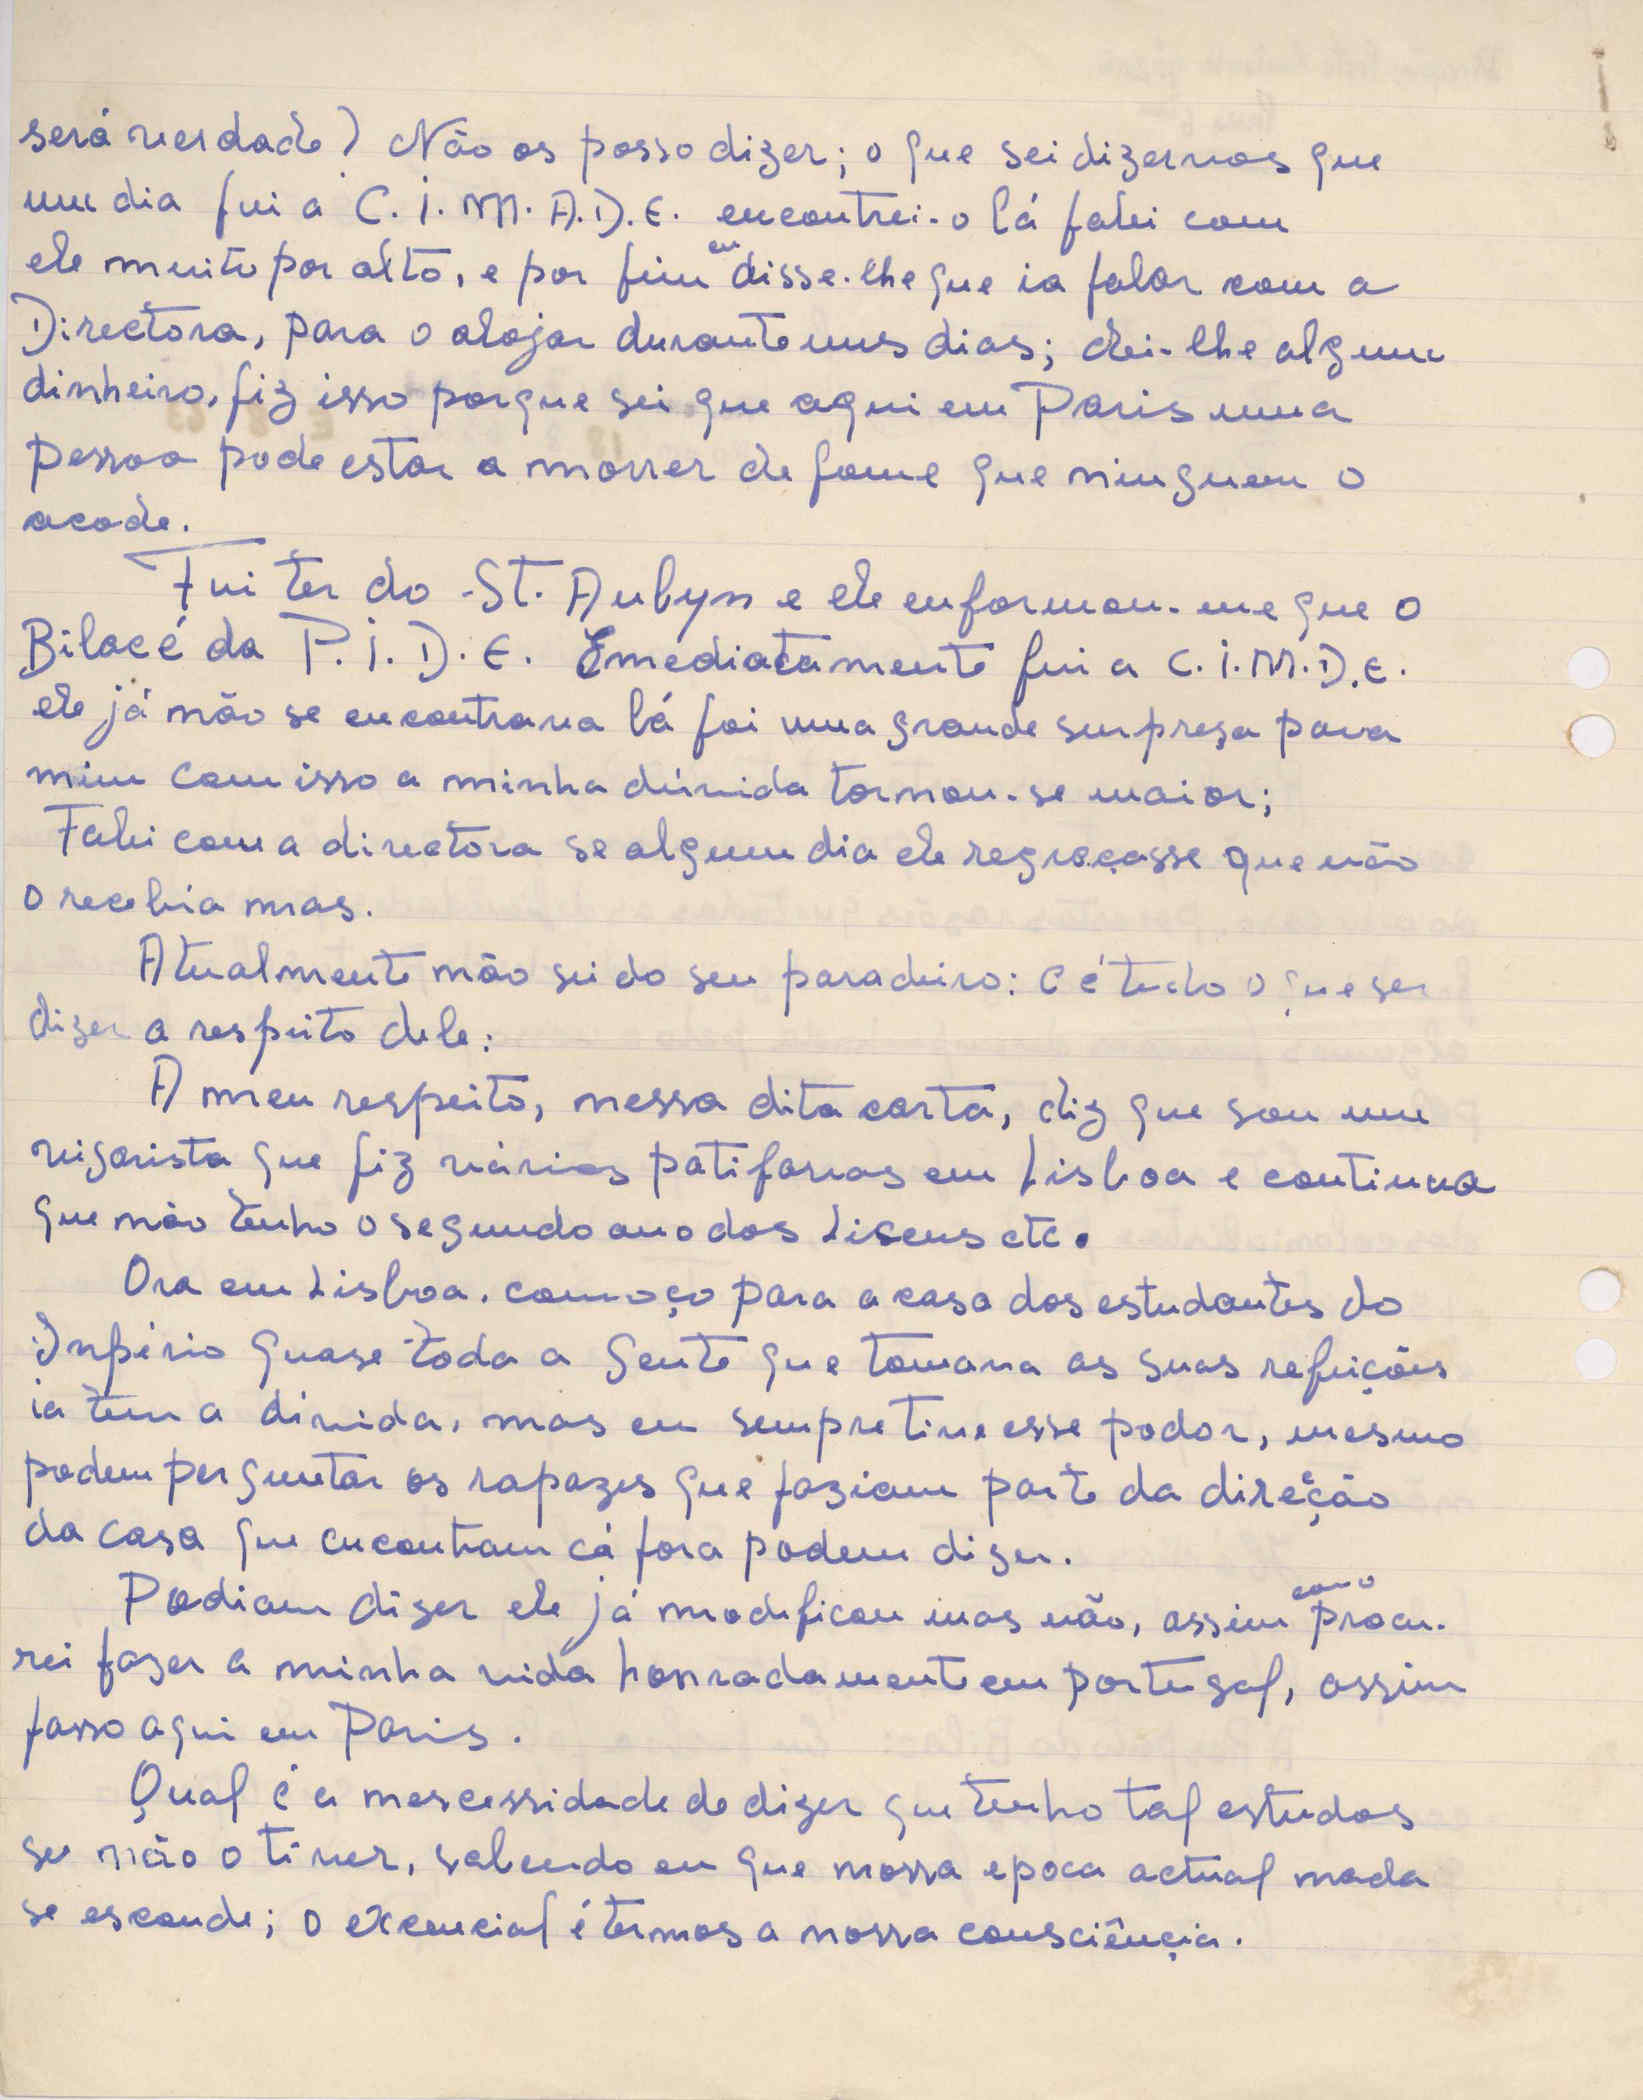 será verdade? Não os posso dizer; o que sei dizervos que
um dia fui a C.I.M.A.D.E. encontrei-o lá falei com
ele muito por alto, e por fim eu disse-lhe que ia falar com a
Directora, para o alojar durante uns dias; dei-lhe algum
dinheiro, fiz isso porque sei que aqui em Paris uma
pessoa pode estar a morrer de fome que ninguem o
acode.
Fui ter do St. Aubyn e ele enformou-me que o
Bilac é da P.I.D.E. Emediatamente fui a C.I.M.D.E.
ele já não se encontrava lá foi uma grande surpreza para
mim com isso a minha dúvida tornou-se maior;
Falei com a directora se algum dia ele regreçasse que não
o recebia mas.
Atualmente não sei do seu paradeiro: e é tudo o que sei
dizer a respeito dele:
A meu respeito, nessa dita carta, diz que sou um
vigarista que fiz várias patifarias em Lisboa e continua
que não tenho o segundo ano dos Liceus etc.
Ora em Lisboa, começo para a casa dos estudantes do
Império quase toda a gente que tomava as suas refeições
ia tem a divida, mas eu sempre tive esse podor, mesmo
podem perguntar os rapazes que faziam parte da direção
da casa que encontram cá fora podem dizer.
Podiam dizer ele já modificou mas não, assim como procu-
rei fazer a minha vida honradamente em portugal, assim
fasso aqui em Paris.
Qual é a nescessidade de dizer que tenho tal estudos
se não o tiver, sabendo eu que nossa epoca actual nada
se esconde; o excencial é termos a nossa consciênçia.